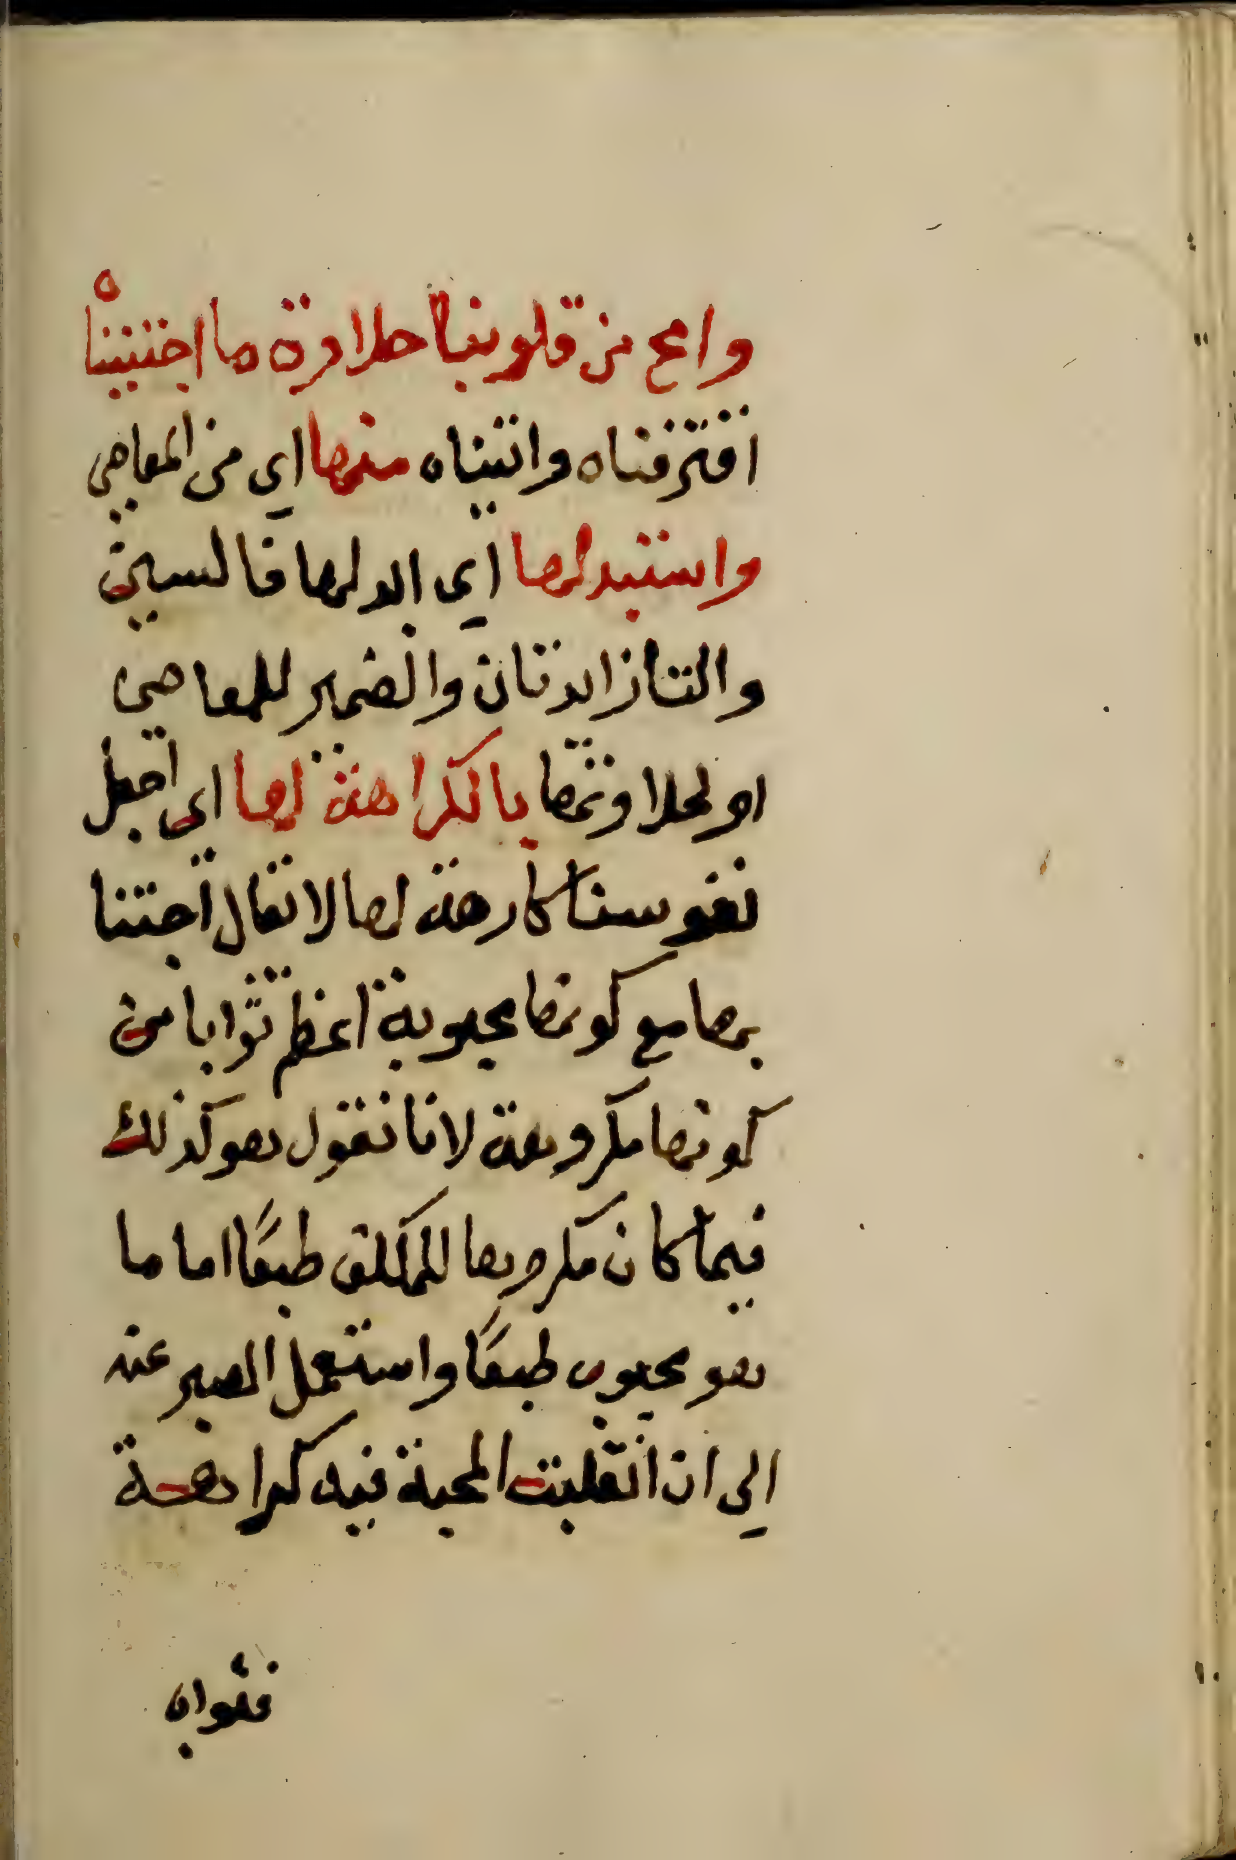 وامح من قلوبنا حلاوة ما اجتنيناه
اقترفناه واتيناه منها اي من المعاصي
واستبدلها اي ابدلها فالسين
والتا زايدتان والضمير للمعاصي
او لحلاوتها بالكراهة لها اي اجعل
نفوسنا كارهة لها لا تقال اجتنا
بها مع كونها محبوبة اعظم ثوابا من
كونها مكروهة لانا نقول هو كذلك
فيما كان مكروها للمكلف طبعًا اما ما
هو محبوب طبعًا واستعمل الصبر عنه
الي ان انقلبت المحبة فيه كراهة
فثواب